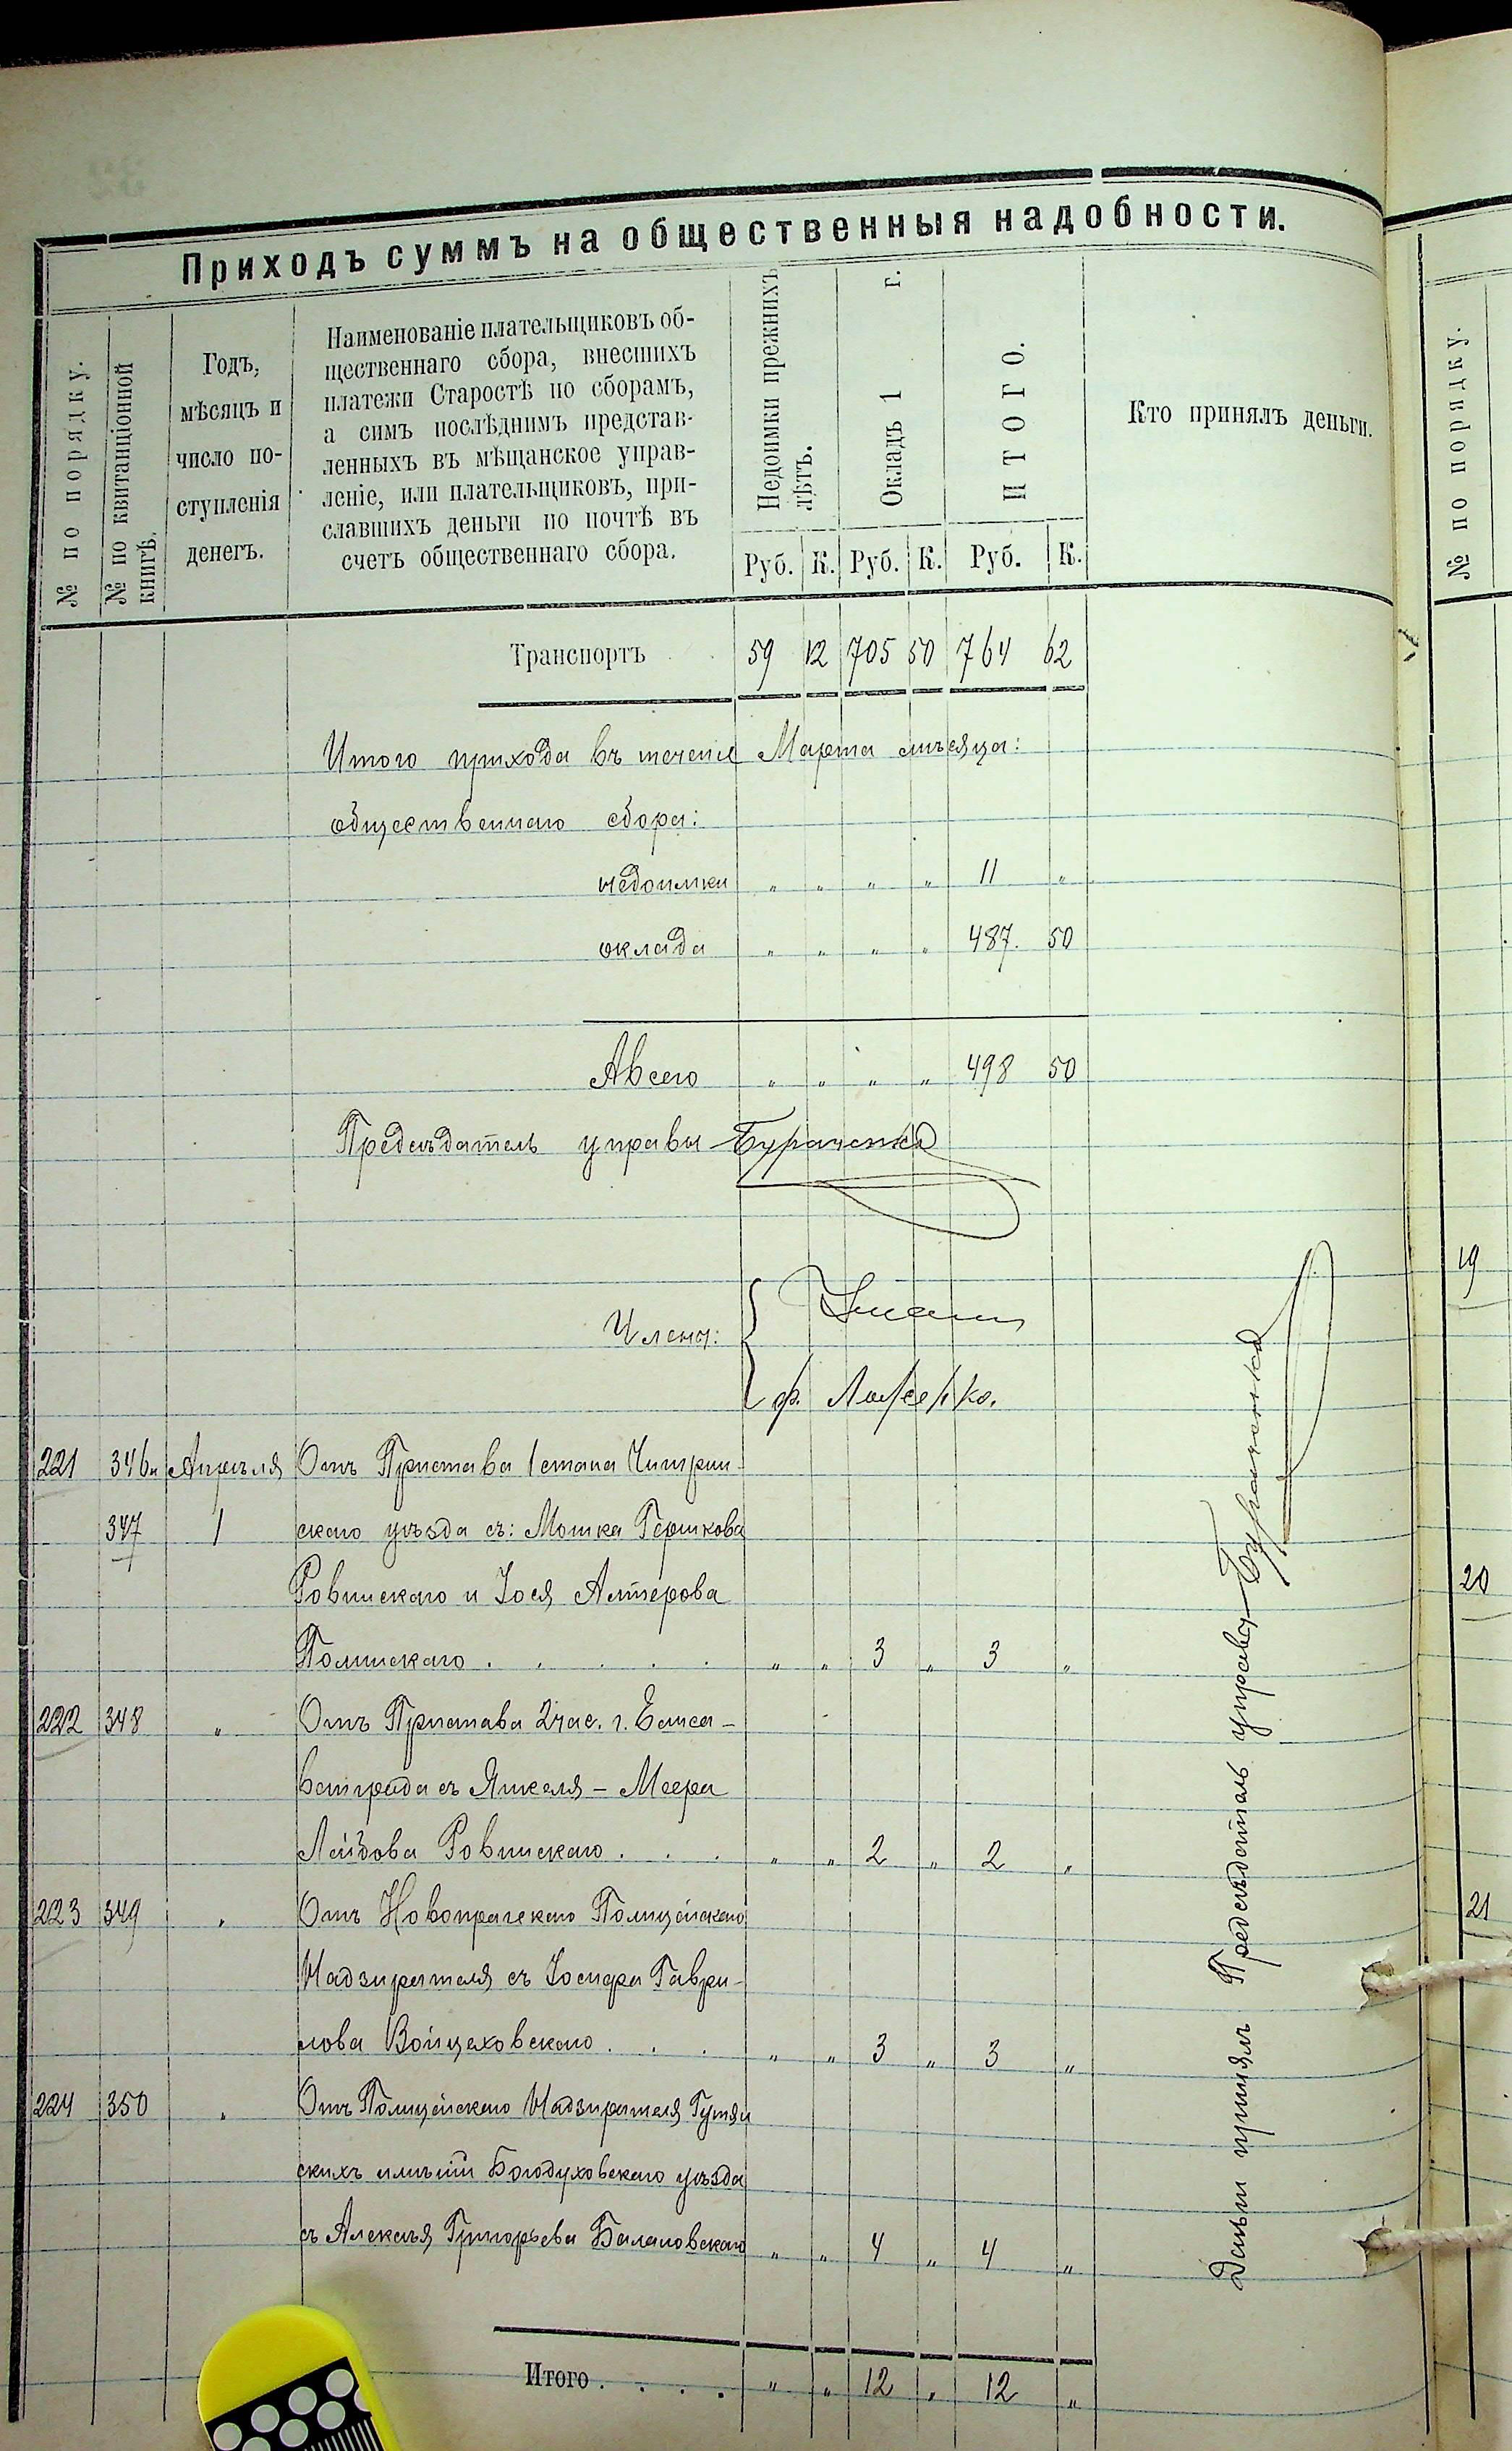 Приходъ суммъ на общественныя надобности.
№ по порядку.
№ по квитанціонной
книгѣ.
Годъ,
мѣсяцъ и
число по-
ступленія
денегъ.
Наименованіе плательщиковъ об-
щественнаго сбора, внесшихъ
платежи Старостѣ по сборамъ,
а симъ послѣднимъ представ-
ленныхъ въ мѣщанское управ-
леніе, или плательщиковъ, при-
славшихъ деньги по почтѣ въ
счетъ общественнаго сбора.
Недоимки прежнихъ
лѣтъ.
Окладъ 1 г.
ИТОГО.
Кто принялъ деньги.
Руб. К. Руб. К. Руб. К.
Транспортъ 59 12 705 50 764 62
Итого прихода въ теченіе Марта мѣсяца:
общественнаго сбора:
недоимки " " " " 11 "
оклада " " " " 487. 50
А всего " " " " 498 50
Предсѣдатель управы Бураченко
Члены:
Ф.
221 346 и Апрѣля Отъ Пристава 1 стана Чигрин-
347 1 скаго уѣзда съ: Мошка Гершкова
Ровинскаго и Іося Алтерова
Полинскаго . . . . . " " 3 " 3 "
222 348 " Отъ Пристава 2 час. г. Елиса-
ветграда съ Янкеля-Меера
Лейбова Ровинскаго . . . " " 2 " 2 "
223 349 " Отъ Новопражскаго Полицейскаго
Надзирателя съ Іосифа Гаври-
лова Войцеховскаго . . . " " 3 " 3 "
224 350 " Отъ Полицейскаго Надзирателя Гутян
скихъ имѣній Богодуховскаго уѣзда
съ Алексѣя Григорьева Балановскаго " " 4 " 4 "
Итого . . . . " " 12 " 12 "
Деньги принялъ Предсѣдатель управы Бураченко
№ по порядку.
19
20
21